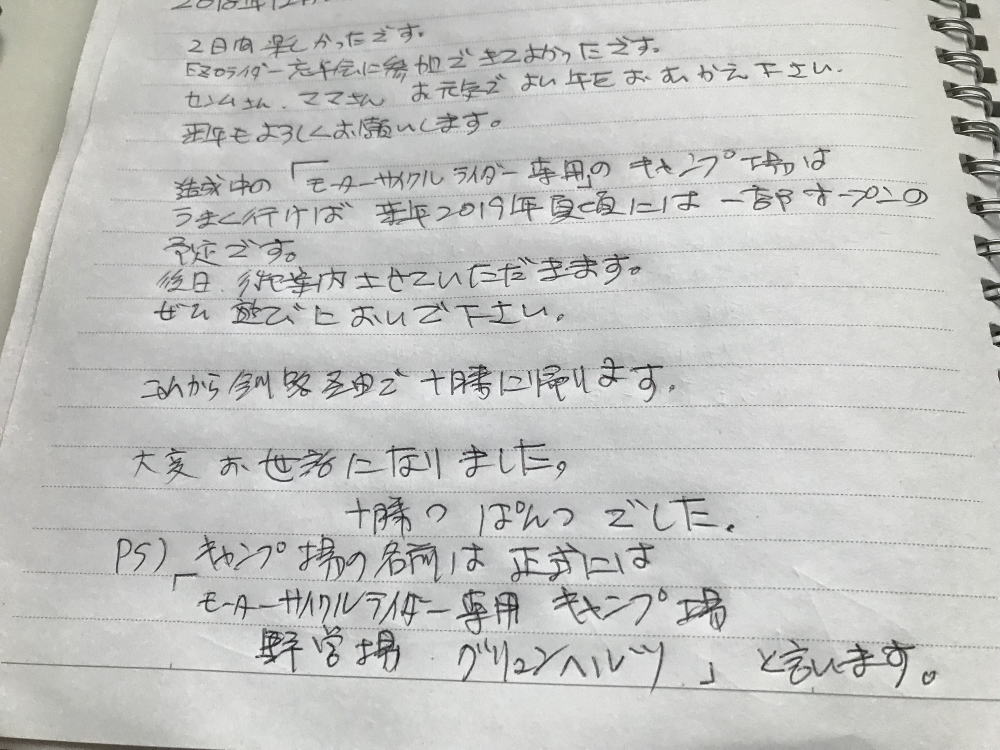 2日間楽しかったです。
EZOライダー忘年会に参加できてよかったです。
ママさん お元気で よい年を おむかえ下さい.
来年もよろしくお願いします。
造成中の「モーターサイクルライダー専用」の キャンプ場は
うまく行けば 来年2019年夏頃には 一部オープンの
予定です。
後日 案内させていただきます。
ぜひ 遊びに おいで下さい.
これから釧路経由で 十勝に帰ります.
大変 お世話になりました。
十勝の ぱんつ でした.
PS) キャンプ場の名前は 正式には
「モーターサイクルライダー専用 キャンプ場
野営場 グリュンヘルツ」と言います。